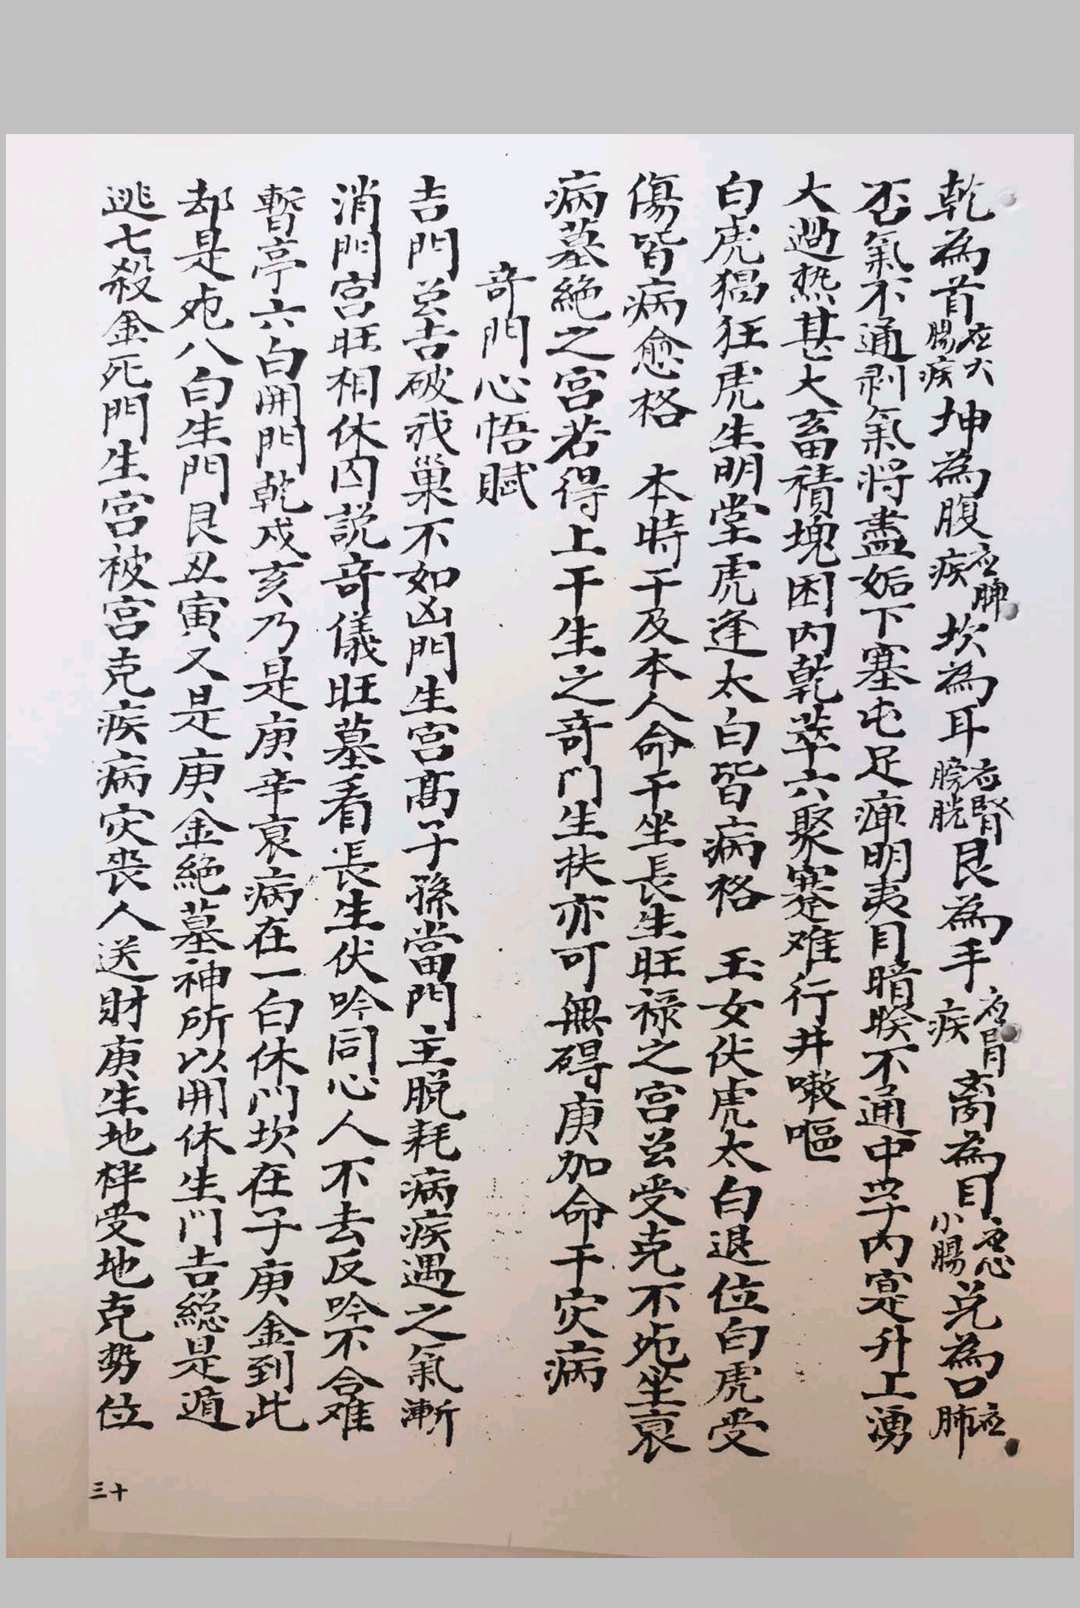 乾為首應大腸疾坤為腹應肺疾坎為耳應腎膀胱艮為手應胃疾离為目應心小腸兑為口應肺
否氣不通剥氣將盡姤下塞屯足痺明夷目暗睽不通中孚内寔升上湧
大過热甚大畜積塊困内乾萃六聚蹇难行井嗽嘔
白虎猖狂虎生明堂虎逢太白皆病格 玉女伏虎太白退位白虎受
傷皆病愈格 本時干及本人命干坐長生旺禄之宫若受克不死坐衰
病墓絶之宫若得上干生之奇門生扶亦可無碍庚加命干灾病
奇門心悟賦
吉門若吉破我巢不如凶門生宫髙子孫當門主脱耗病疾遇之氣漸
消門宫旺相休囚説奇儀旺墓看長生伏吟同心人不去反吟不合难
暫亭六白開門乾戍亥乃是庚辛衰病在一白休門坎在子庚金到此
却是死八白生門艮丑寅又是庚金絶墓神所以開休生門吉総是遁
逃七殺金死門生宫被宫克疾病灾丧人送財庚生地柈受地克勢位
三十